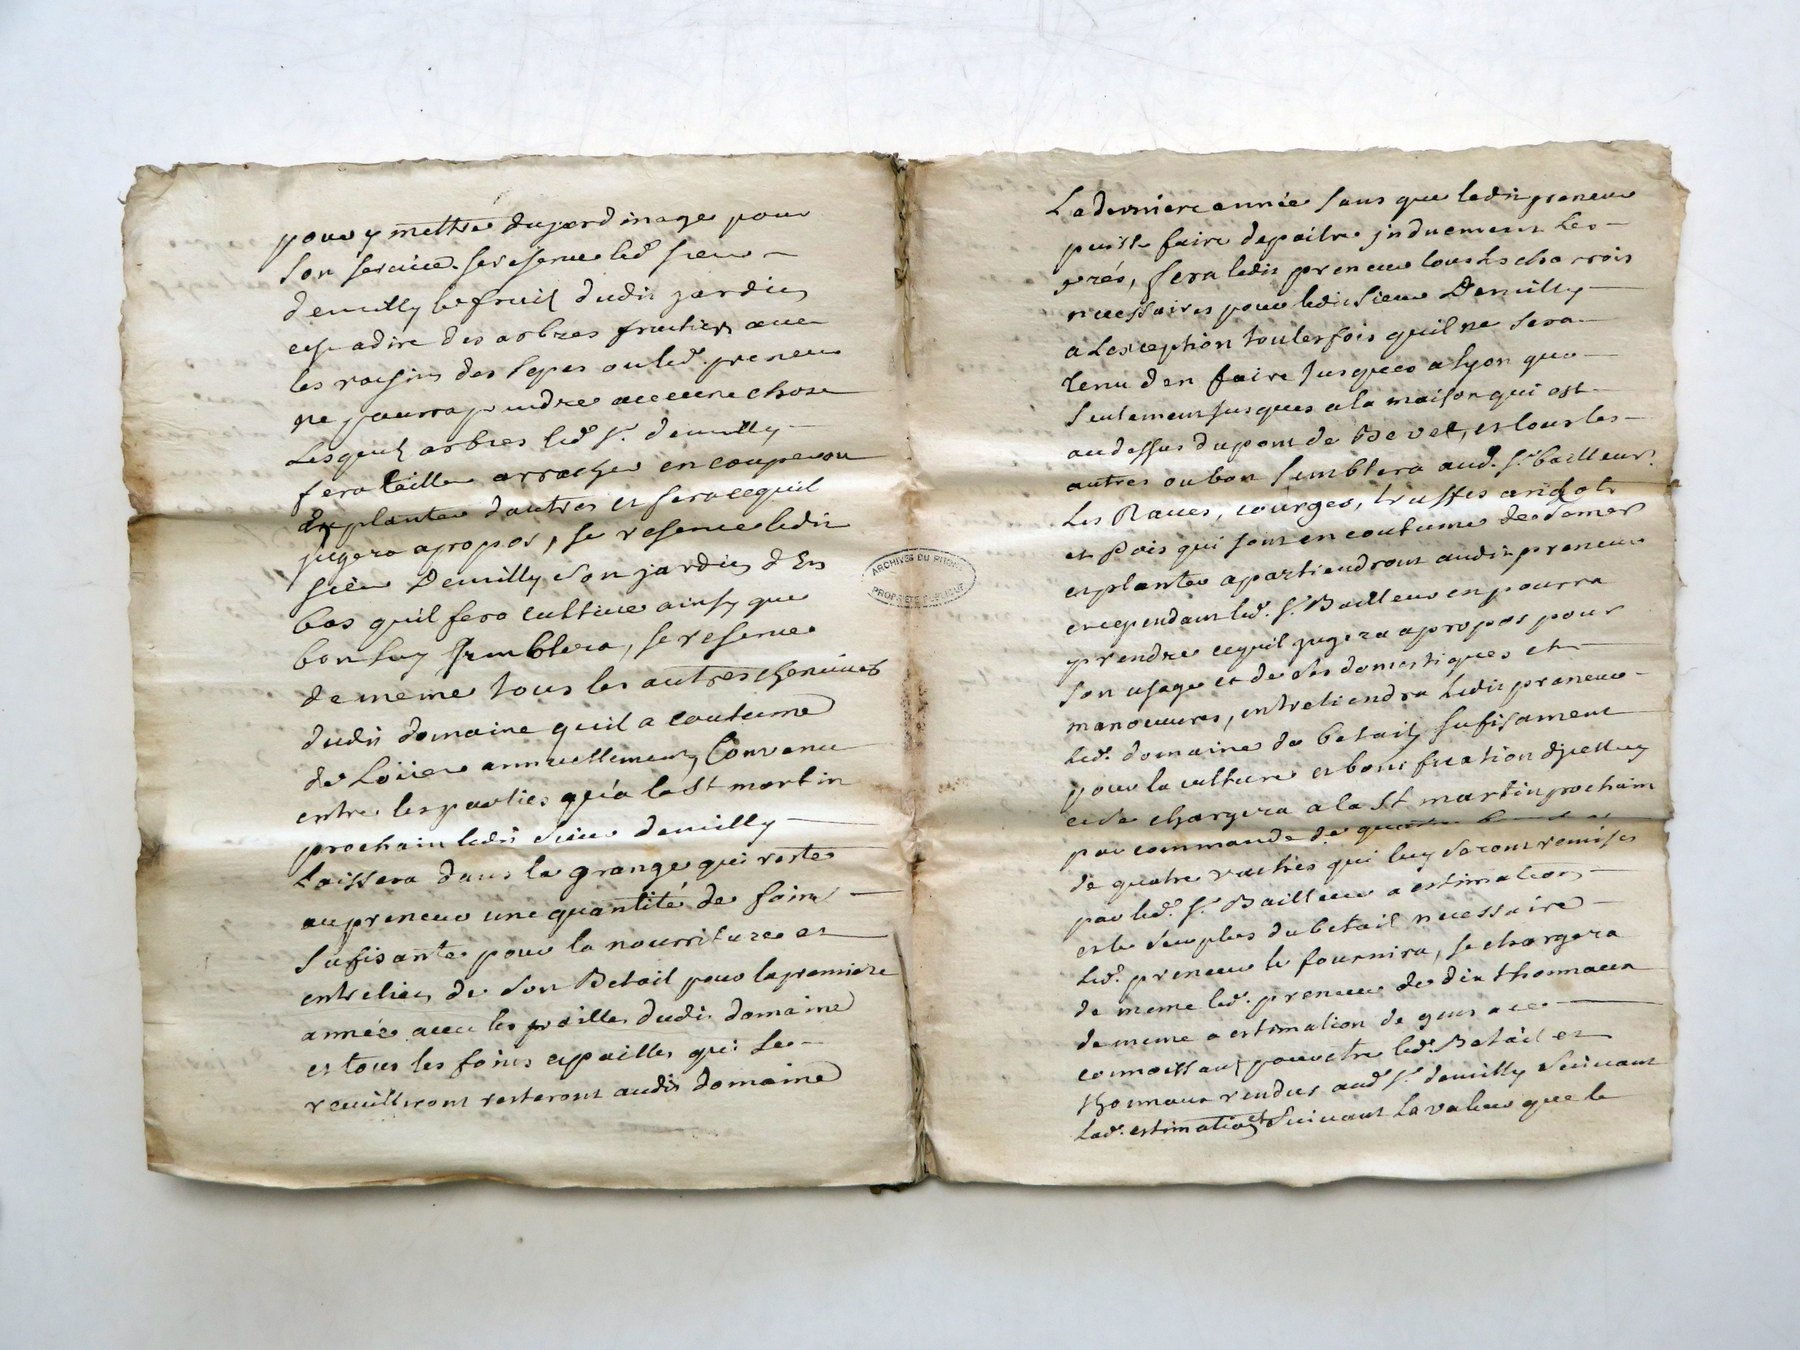 pour y mettre du jardinage pour
son service. se reserve led. sieur
demilly le fruit dudit jardin
cest adire des arbres fruitiers avec
les raisins des seps ou led. preneur
ne pourra prendre aucune chose
Lesquels arbres led. Sr. demilly
fera tailler arracher en couper ou
en planter dautres et fera cequil
jugera apropos, se reserve ledit
sieur Demilly son jardin d'En
bas quil fera cultiver ainsy que
bon luy semblera, se reserve
de meme tous les autres chenevieres
dudit domaine quil a coutume
de Loüer annuellement, Convenu
entre les parties qu'a la St martin
prochain ledit sieur demilly
Laissera dans la grange qui reste
au preneur une quantité de foin
sufisante pour la nourriture et
entretien de son Betail pour la premiere
année avec les pailles dudit domaine
et tous les foins et pailles qui se
recuilliront resteront audit domaine
La derniere année sans que ledit preneur
puisse faire depaitre jnduement les
prés, fera ledit preneur tous les charrois
necessaires pour ledit sieur Demilly
a Lexception toutesfois quil ne sera
tenu den faire jusques a lyon que
seulement jusques a la maison qui est
au dessus du pont de Bevet, et tous les
autres ou bon semblera aud. Sr. bailleur.
Les Raves, courges, truffes aricots
et Pois qui sont en coutume de semer
et planter apartiendront audit preneur
et cependant led. Sr. Bailleur en pourra
prendre cequil jugera apropos pour
son usage et de ses domestiques et
manoeuvres, entretiendra ledit preneur
led. domaine de betail sufisament
pour la culture et bonification dycelluy
et se chargera a la St martin prochain
par commande de
de quatre vaches qui luy seront remises
par led. Sr. Bailleur a estimation
et le surplus du betail necessaire
led. preneur le fournira, se chargera
de meme led. preneur de dix thonneaux
de meme a estimation de gens a ce
connoissants pour etre led. Betail et
thonneaux rendus aud. Sr. demilly suivant
lad. estimation et suivant la valeur que le
ARCHIVES DU
PROPRIETE PUBLIQUE